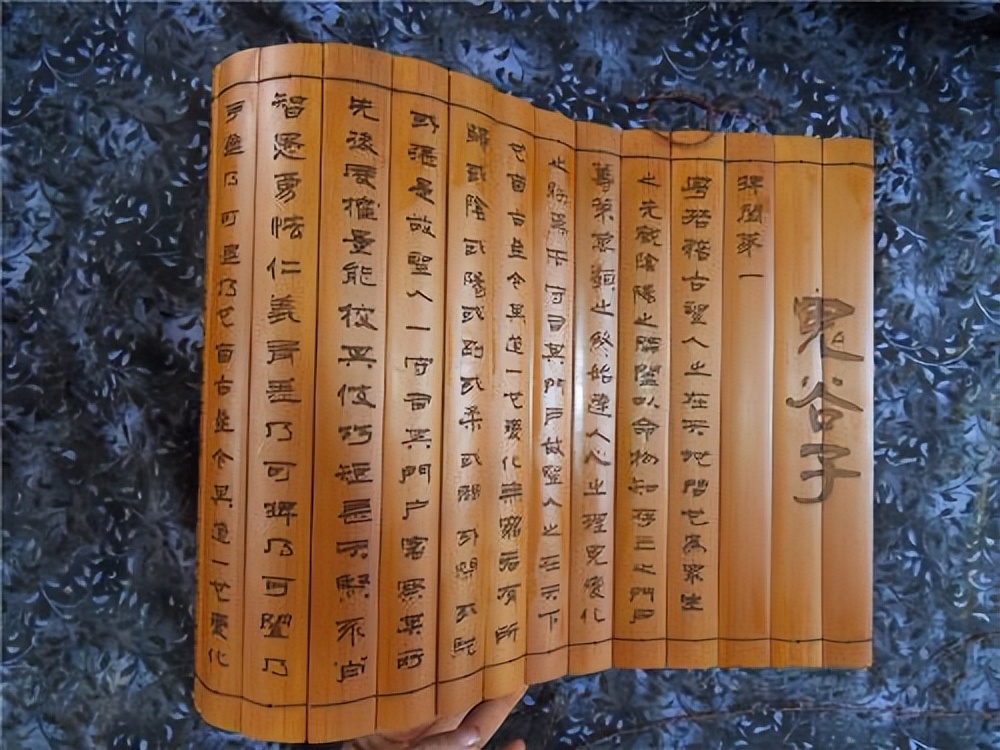 鬼谷子
捭闔第一
粵若稽古聖人之在天地間也為眾生
之先觀陰陽之開闔以命物知存亡之門戶
籌策萬類之終始達人心之理見變化
之朕焉而守司其門戶故聖人之在天下
也自古至今其道一也變化無窮各有所
歸或陰或陽或剛或柔或開或閉或弛
或張是故聖人一守司其門戶審察其所
先後度權量能校其伎巧短長夫賢不肖
智愚勇怯仁義有差乃可捭乃可闔乃
可進乃可退乃也自古至今其道一也變化